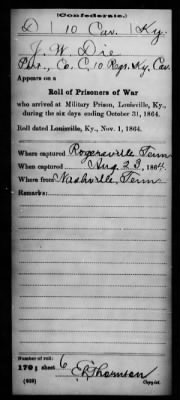 (Confederate.)
D | 10 Cav. | Ky.
J. W. Die
Pvt., Co. C, 10 Regt. Ky. Cav.
Appears on a
Roll of Prisoners of War
who arrived at Military Prison, Louisville, Ky.,
during the six days ending October 31, 1864.
Roll dated Louisville, Ky., Nov. 1, 1864.
Where captured Rogersville, Tenn
When captured Aug 23, 1864.
Where from Nashville, Tenn
Remarks:
Number of roll:
170; sheet 6
Thornton
(639) Copyist.